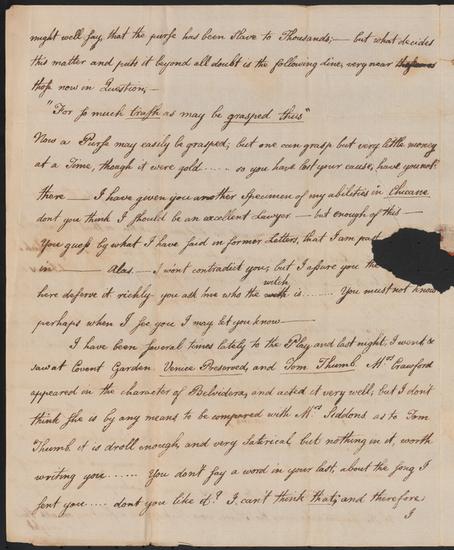 might well say, that the purse has been Slave to Thousands;— but what decides
this matter and puts it beyond all doubt is the following line, very near
those now in Question,—
"For so much trash as may be grasped thus"
Now a Purse may easily be grasped; but one can grasp but very little money
at a Time, though it were gold..... so you have lost your cause, have you not
there — I have given you another Specimen of my abilities in Chicane
dont you think I should be an excellent Lawyer — but enough of this —
You guess by what I have said in former Letters, that I am
in —— Alas.— I wont contradict you, but I assure you the
here deserve it richly you ask me who the witch is...... You must not know
perhaps when I see you I may let you know —
I have been several times lately to the Play, and last night, I went &
saw at Covent Garden. Venice Preserved, and Tom Thumb. Mrs Crawford
appeared in the character of Belvidera, and acted it very well, but I don't
think she is by any means to be compared with Mrs Siddons as to Tom
Thumb. it is droll enough, and very Saterical, but nothing in it, worth
writing you...... You don't say a word in your last, about the song I
sent you..... dont you like it? I can't think that, and therefore
I